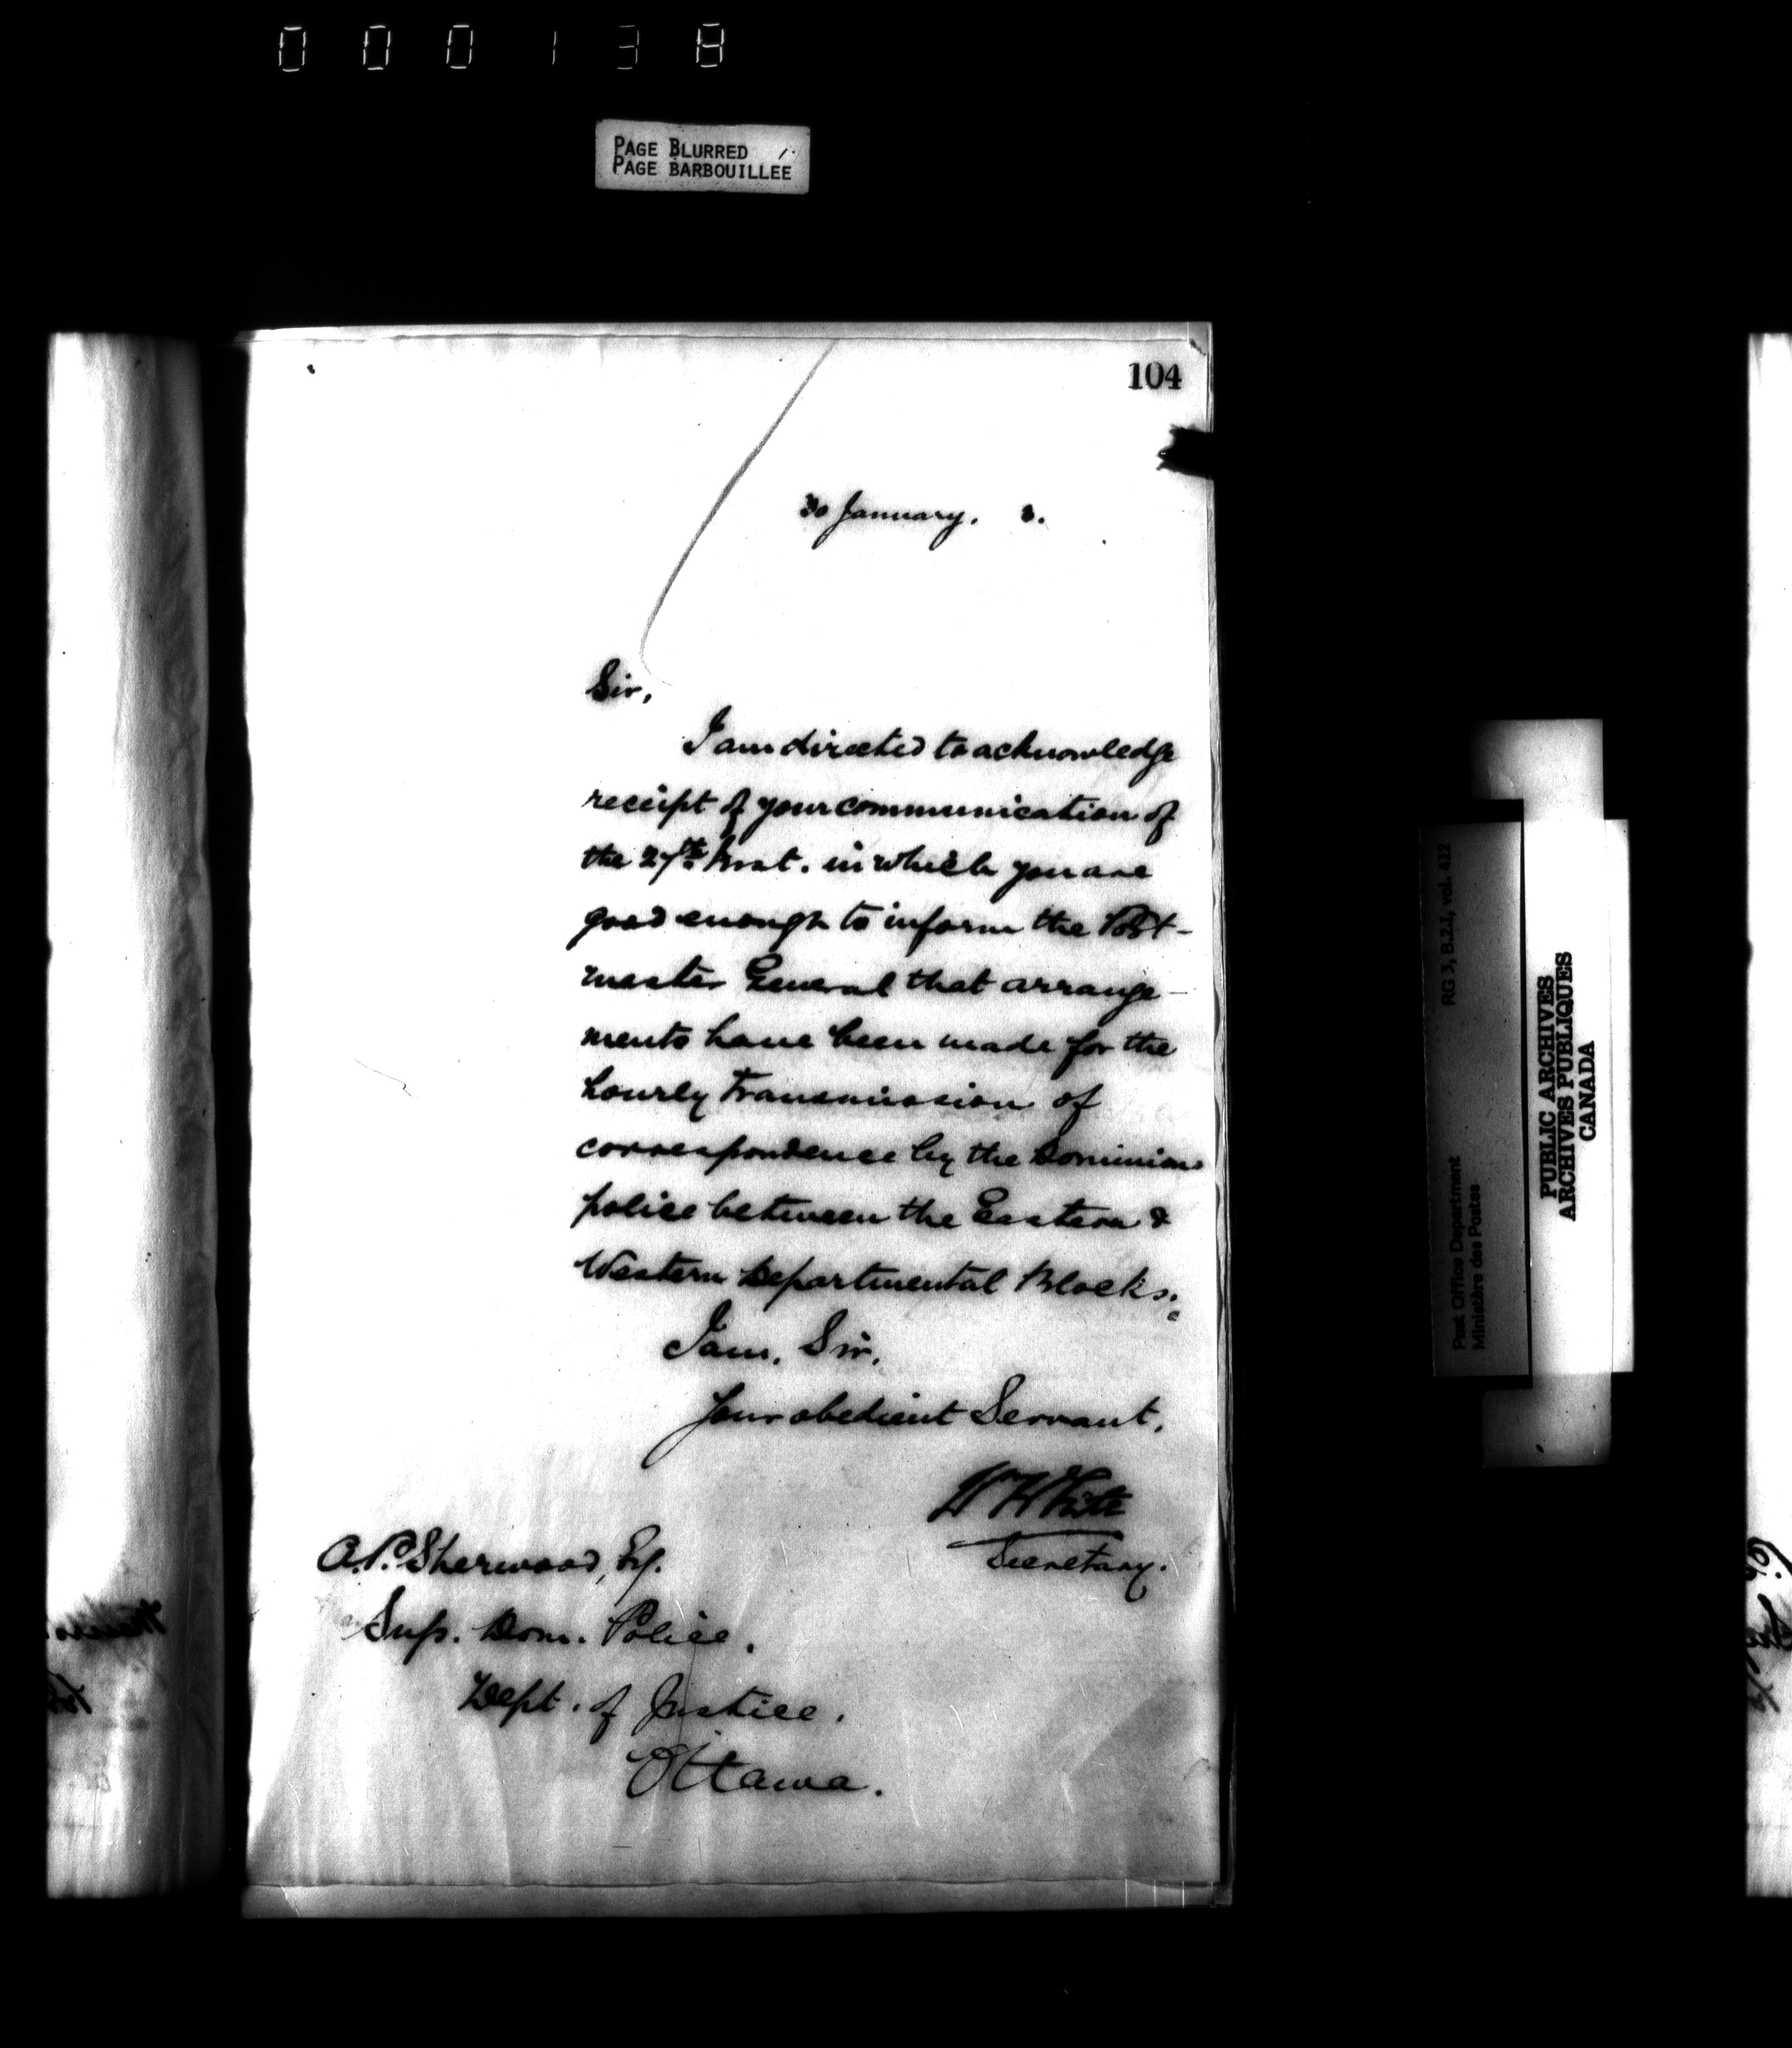 000138
PAGE BLURRED 1.
PAGE BARBOUILLEE
104
30 January. 3.
Sir,
I am directed to acknowledge
receipt of your communication of
the 27th Inst. in which you are
good enough to inform the Post-
master General that arrange-
ments have been made for the
hourly transmission of
correspondence by the Dominion
police between the Eastern &
Western Departmental Blocks.
I am, Sir.
Your obedient Servant,
Wm White
Secretary.
A.P. Sherwood, Esq.
Sup. Dom. Police.
Dept. of Justice.
Ottawa.
RG 3, B.2.1, vol. 412
Post Office Department
Ministère des Postes
PUBLIC ARCHIVES
ARCHIVES PUBLIQUES
CANADA